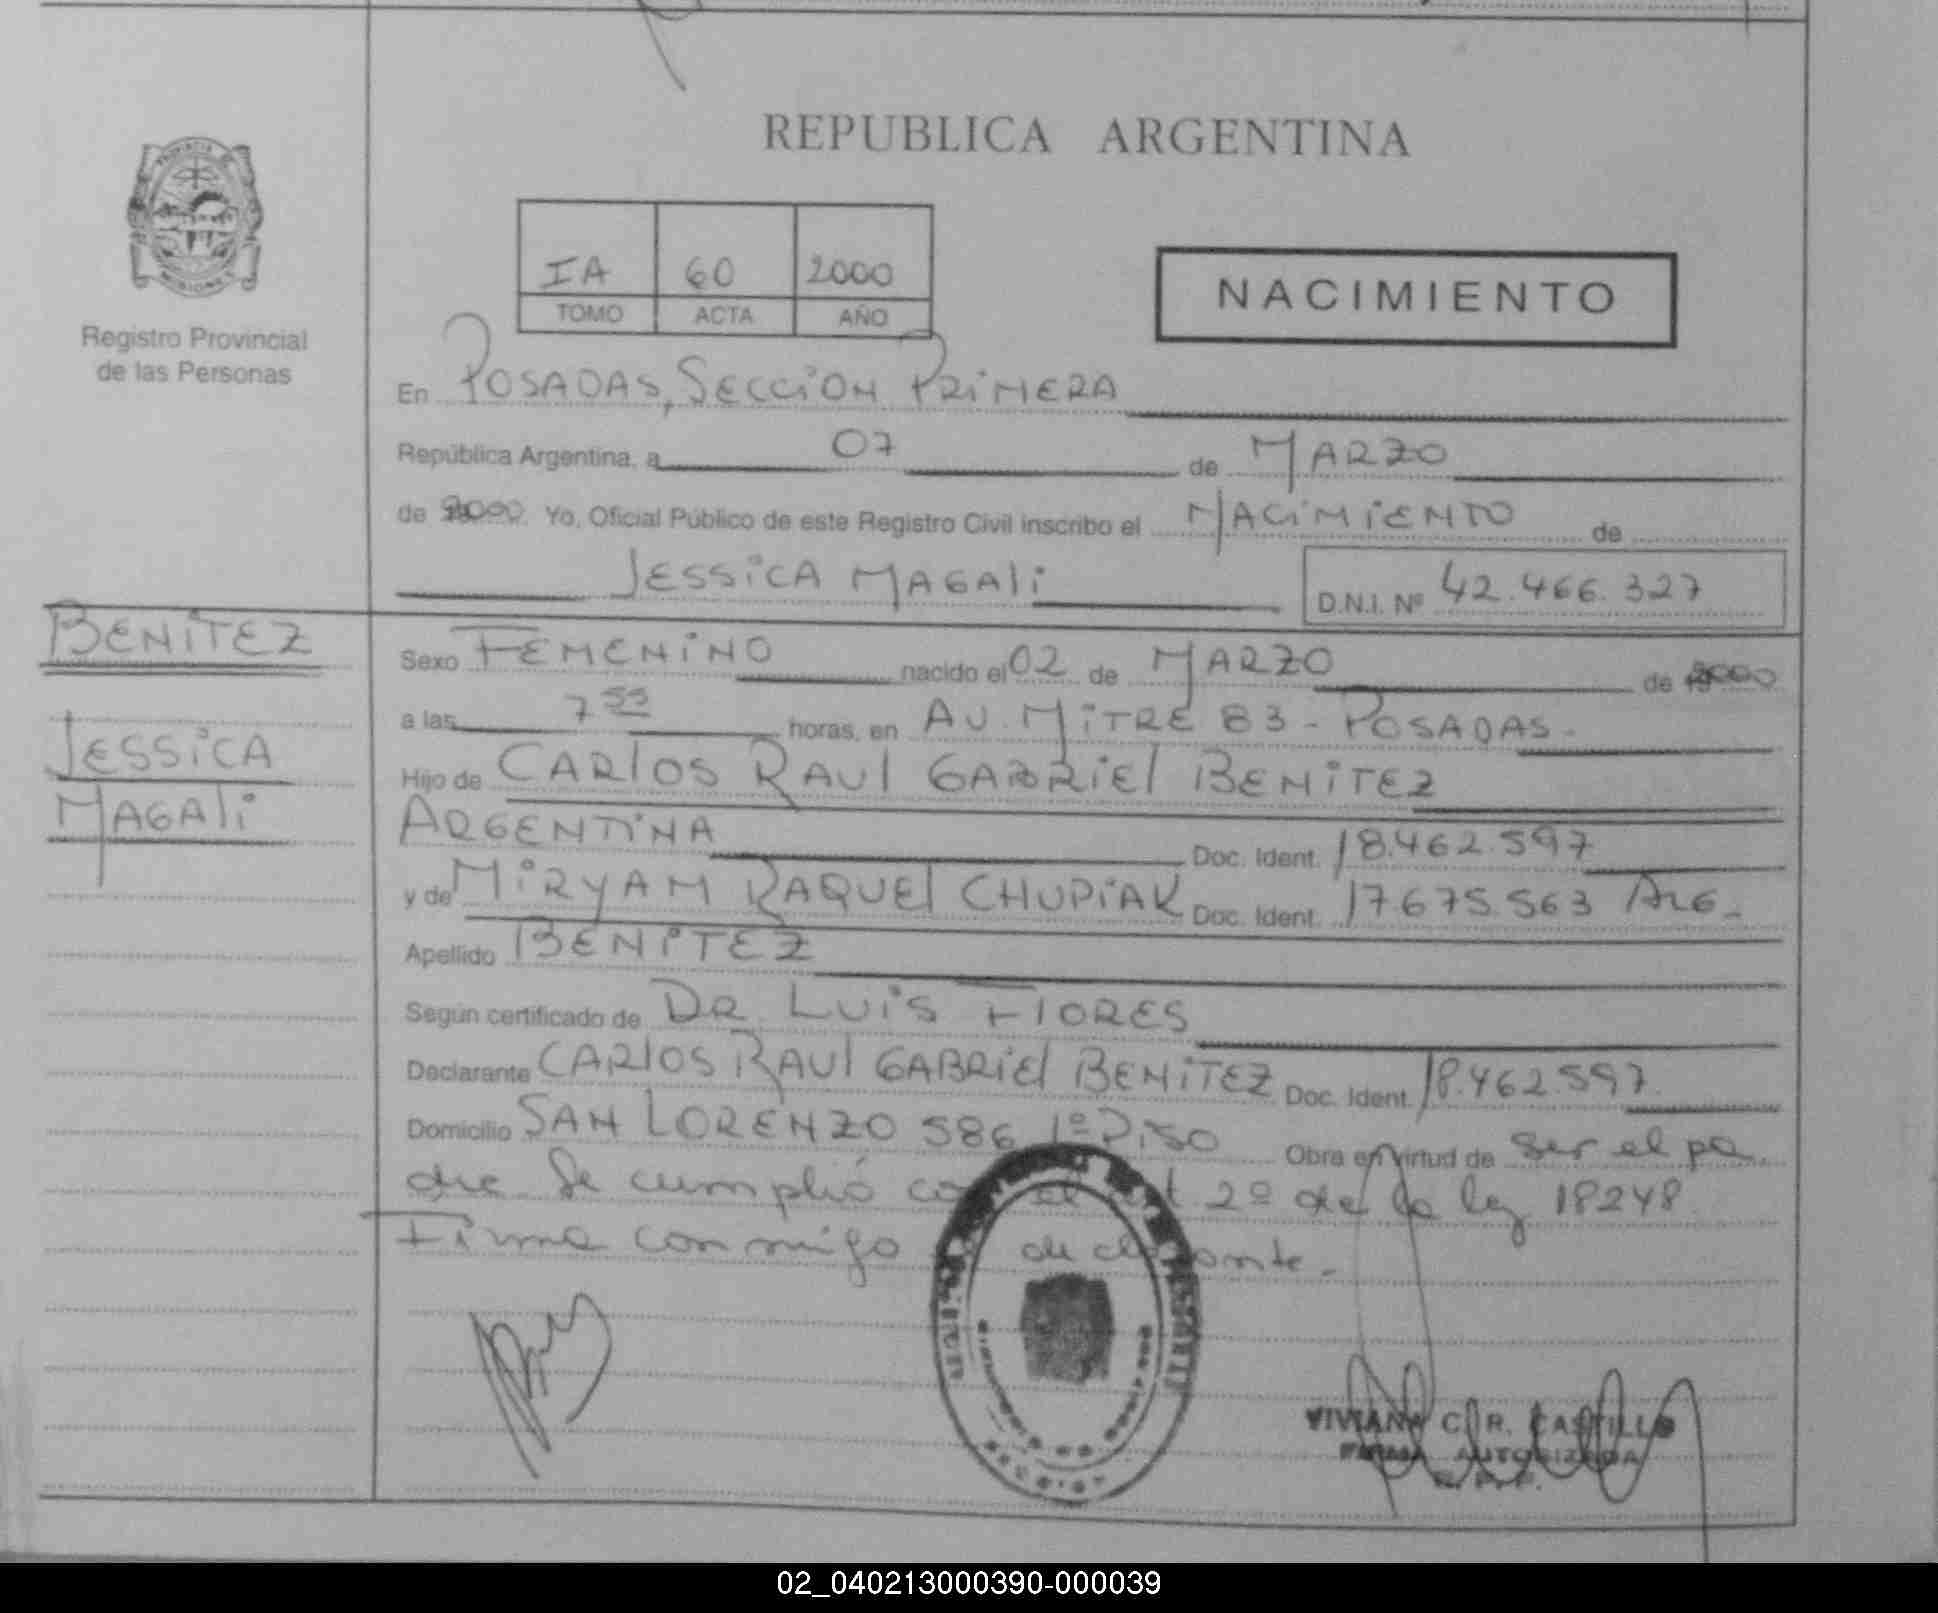 REPUBLICA ARGENTINA
IA 60 2000
TOMO ACTA AÑO
NACIMIENTO
Registro Provincial
de las Personas
En POSADAS, SECCION PRIMERA
República Argentina, a 07 de MARZO
de 2000 Yo, Oficial Público de este Registro Civil inscribo el NACIMIENTO de
JESSICA MAGALI D.N.I. Nº 42.466.327
BENITEZ
JESSICA
MAGALI
Sexo FEMENINO nacido el 02 de MARZO de 2000
a las 7 55 horas, en AV. MITRE 83 - POSADAS -
Hijo de CARLOS RAUL GABRIEL BENITEZ
ARGENTINA Doc. Ident. 18.462.597
y de MIRYAM RAQUEL CHUPIAK Doc. Ident. 17.675.563 ARG-
Apellido BENITEZ
Según certificado de DR. LUIS FLORES
Declarante CARLOS RAUL GABRIEL BENITEZ Doc. Ident. 18.462.597
Domicilio SAN LORENZO 586 1º PISO Obra en virtud de ser el pa
dre. Se cumplió con el 2º de la ley 18248
Firma conmigo
VIVIANA C. R. CASTILLO
FIRMA AUTORIZADA
R. P. P.
02_040213000390-000039